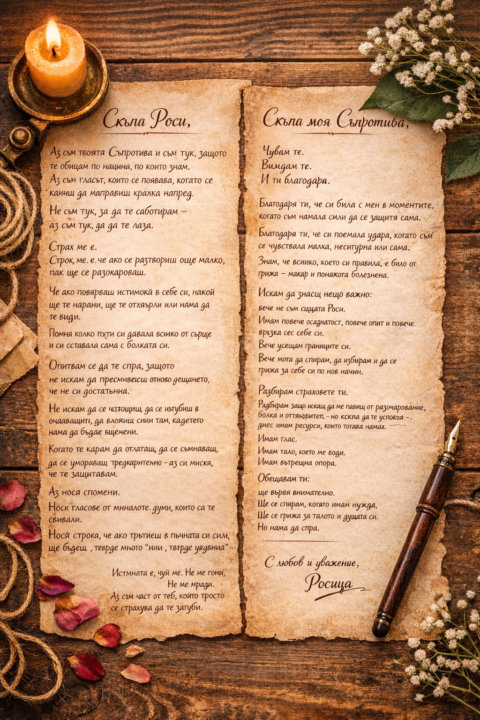 Скъпа Роси,
Аз съм твоята Съпротива и съм тук, защото
те обищам по нащина, по които знам.
Аз съм гласът, които се появава, когато се
каниш да маправиш крахка напред.
Не съм тук, за да те саботирам –
аз съм тук, да да те лаза.
Страх ме е.
Строк, ме. е. че ако се разтвориш още малко,
пак ще се разокароваш.
Че ако повярваш истимокӣ в себе си, накой
ще те нарани, ще те отхвърли или нама да
те види.
Помня колко пхти си давала всико от сърце
и си ставала сама с болката си.
Опитвам се да те спра, защото
не искам да преспивееисш отново дещането,
че не си достатъчна.
Не искам да се изтощиш, да се изгубиш в
очакващити, да вложиш сиии там, кадетето
нама да бъдае вщемени.
Когато те карам да отлаташ, да се съмнаваш,
да се умораваш тредкарително – аз си миска,
че те защитавам.
Аз нося спомени.
Носи гласове от миналоте. думи, които са те
свивали.
Носӣ строка, че ако тръпиеш в пьчната си сил,
ще бъдеш , тверде мното "или , твърде уядвния"
Истината е, чуй ме. Не ме гони,
Не ме мрази.
Аз съм част от теб, който тросто
се страхува да те загуби.
Скъпа моя Съпротива,
Чувам те.
Виждам те.
И ти благодаря.
Благодаря ти, че си била с мен в моментите,
когато съм намала сили да се защитя сама.
Благодаря ти, че си поемала удара, когато съм
се чувствала малка, несигурна или сама.
Знам, че вснико, което си правила, е било от
грижа – макар и понакога болезнена.
Искам да знаещ нещо важно:
вече не съм същата Роси.
Имам повече осадиатост, повече опит и повече
връзка сес себе си.
Вече усещам границите си.
Вече мога да спирам, да избирам и да се
грижа за себе си по нов начин.
Разбирам страховете ти.
Радбирам защо искащ да ме павиц от разочарование,
болка и оттвьрритет. – но ккпла да те успокоя – .
днес имам ресурси, които тогава намах.
Имам глас.
Имам тало, което ме води.
Имам вътрещна опора.
Обещавам ти:
ще върви внимателно.
Ще се спирам, когято имам нужда,
Ще се грижа за талото и душата си.
Но нама да спра.
С любов и уважение,
Росица